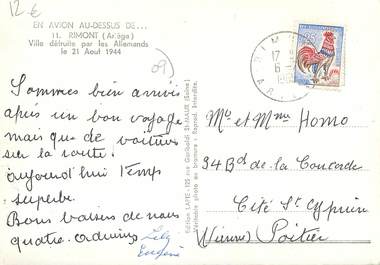 12 €
EN AVION AU-DESSUS DE...
11. RIMONT (Ariège)
Ville détruite par les Allemands
le 21 Août 1944
09)
Sommes bien arrivés
après un bon voyage
mais que de voitures
sur la route.
aujourd'hui temps
superbe.
Bons baisers de nous
quatre.
Lily
Eugène
Edition LAPIE - 125 rue Garibaldi St-MAUR (Seine)
Véritable photo au bromure - Reprod. Interdite.
RIMONT
17
6
ARIEGE
Mr et Mme Homo
34 Bd de la Concorde
Cité St Cyprien
(Vienne) Poitier